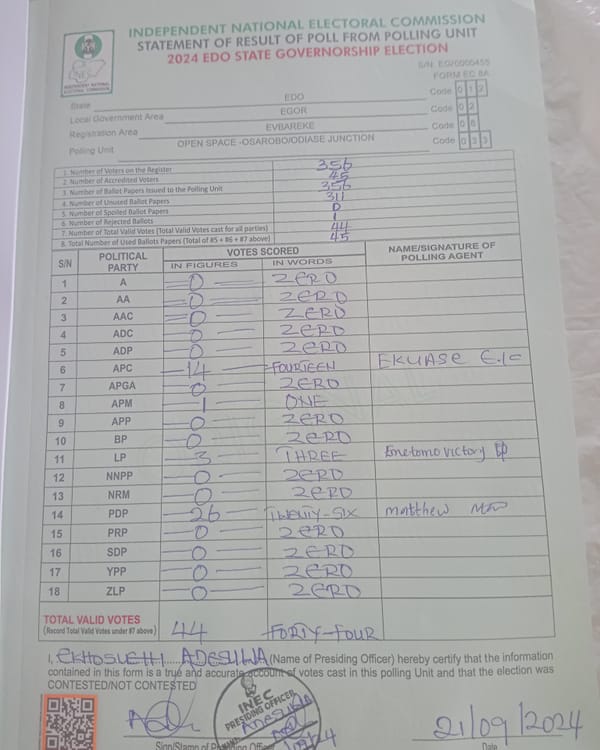 INDEPENDENT NATIONAL ELECTORAL COMMISSION
STATEMENT OF RESULT OF POLL FROM POLLING UNIT
2024 EDO STATE GOVERNORSHIP ELECTION
INEC
INDEPENDENT NATIONAL ELECTORAL COMMISSION
FORM EC 8A
State EDO Code 0 1 2
Local Government Area EGOR Code 0 2
Registration Area EVBAREKE Code 0 8
Polling Unit OPEN SPACE -OSAROBO/ODIASE JUNCTION Code 0 3 3
1. Number of Voters on the Register 356
2. Number of Accredited Voters 45
3. Number of Ballot Papers Issued to the Polling Unit 356
4. Number of Unused Ballot Papers 311
5. Number of Spoiled Ballot Papers 0
6. Number of Rejected Ballots 1
7. Number of Total Valid Votes (Total Valid Votes cast for all parties) 44
8. Total Number of Used Ballots Papers (Total of #5 + #6 + #7 above) 45
S/N POLITICAL PARTY VOTES SCORED NAME/SIGNATURE OF POLLING AGENT
IN FIGURES IN WORDS
1 A 0 ZERO
2 AA 0 ZERO
3 AAC 0 ZERO
4 ADC 0 ZERO
5 ADP 0 ZERO
6 APC 14 FOURTEEN EKUASE E.I.C
7 APGA 0 ZERO
8 APM 1 ONE
9 APP 0 ZERO
10 BP 0 ZERO
11 LP 3 THREE victory
12 NNPP 0 ZERO
13 NRM 0 ZERO
14 PDP 26 TWENTY-SIX matthew
15 PRP 0 ZERO
16 SDP 0 ZERO
17 YPP 0 ZERO
18 ZLP 0 ZERO
TOTAL VALID VOTES 44 FORTY-FOUR
(Record Total Valid Votes under #7 above)
I, ADESUWA (Name of Presiding Officer) hereby certify that the information
contained in this form is a true and accurate account of votes cast in this polling Unit and that the election was
CONTESTED/NOT CONTESTED
INEC
PRESIDING OFFICER
21/09/2024
Sign/Stamp of Presiding Officer Date